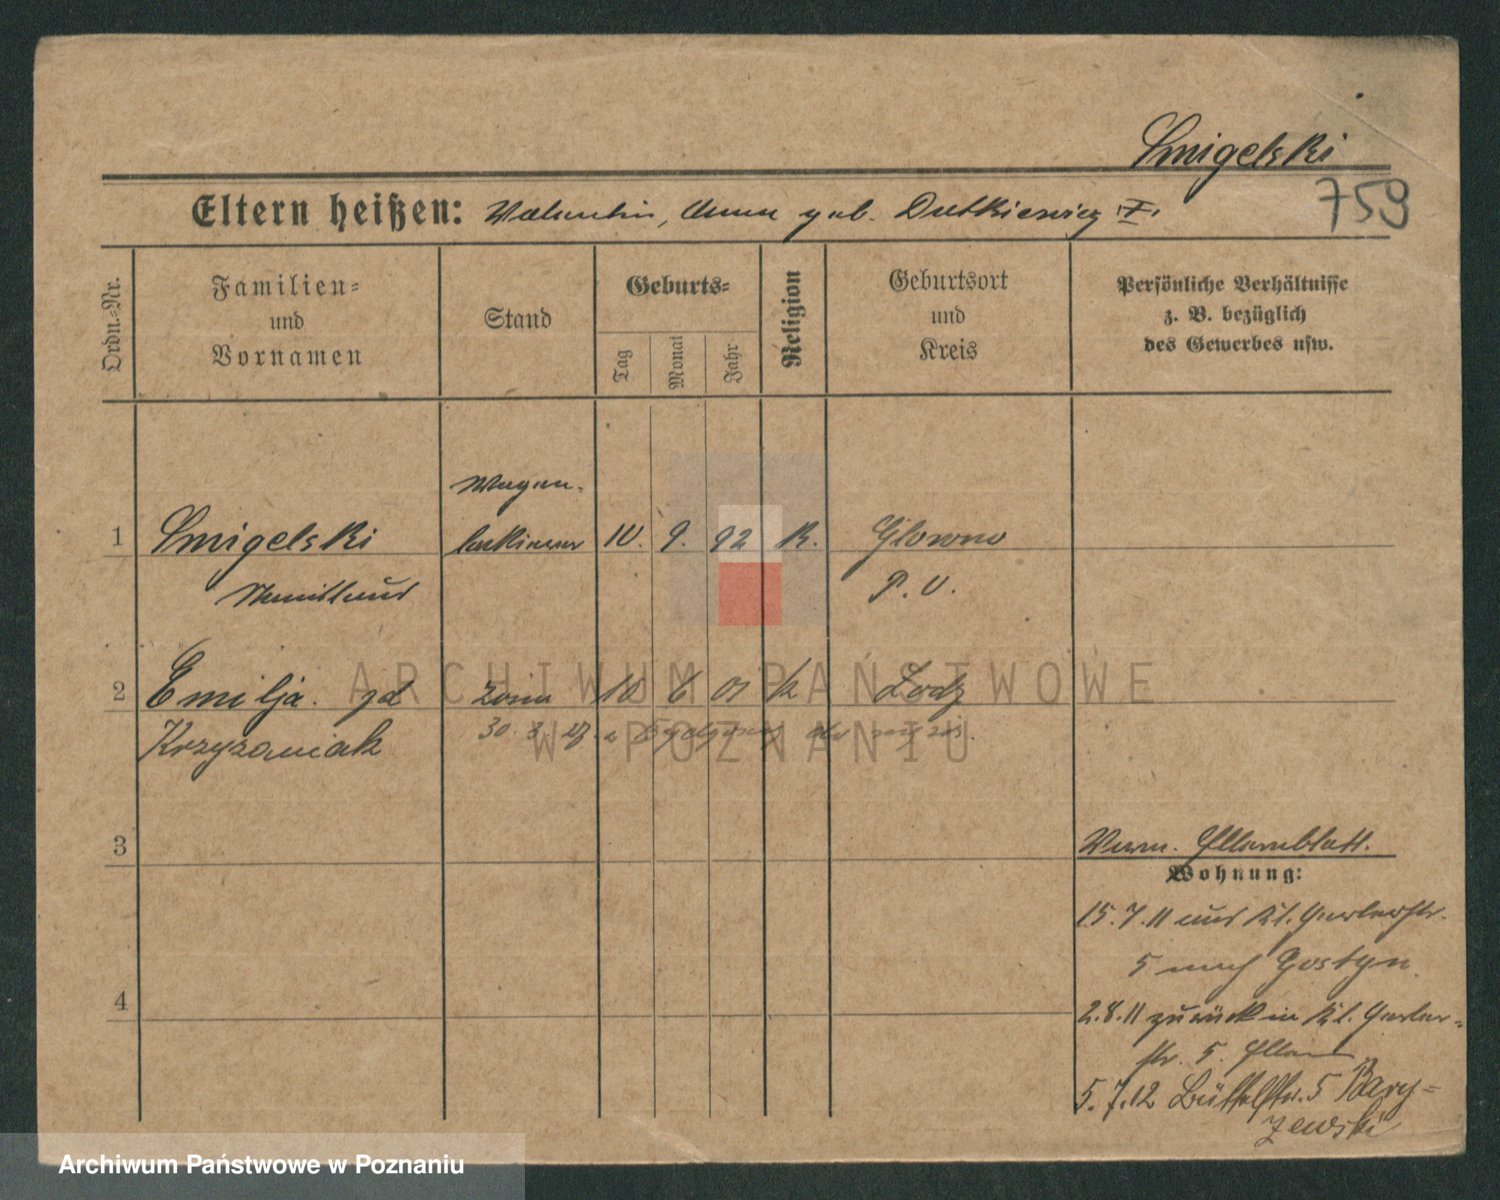 Smigelski
759
Eltern heißen: Valentin, Anna geb. Dutkiewicz
Ordn.-Nr.
Familien-
und
Vornamen
Stand
Geburts-
Tag
Monat
Jahr
Religion
Geburtsort
und
Kreis
Persönliche Verhältnisse
z. B. bezüglich
des Gewerbes usw.
Wagen-
1 Smigelski lackierer 10. 9. 92 K. Glowno
P. O.
2 Emilja zd żona 10 6 01 k Lodz
Krzyżaniak
30. 8.
3
Verm. Elternblatt.
Wohnung:
15.7.11 aus Kl. Gerberstr.
5 nach Gostyn
4
2.8.11 zurück in Kl. Gerber-
str. 5. Eltern
5.7.12 Büttelstr. 5 Bary-
zewski
ARCHIWUM PAŃSTWOWE
W POZNANIU
Archiwum Państwowe w Poznaniu